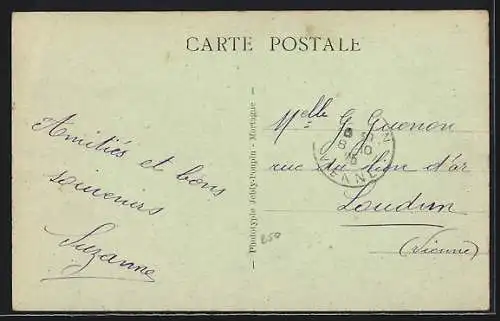 CARTE POSTALE
Amitiés et bons
souvenirs
Suzanne
Phototypie Jehly-Poupin - Mortagne
Melle G. Guenon
rue du lion d'or
Loudun
(Vienne)
8 10
VIENNE
250